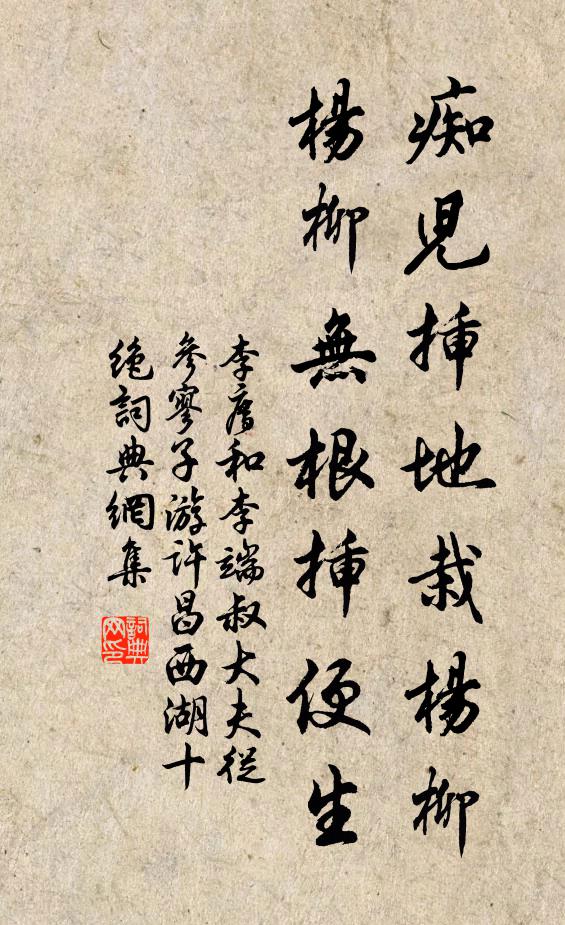 痴兒挿地栽楊柳
楊柳無根挿便生
李廌和李端叔大夫從
參寥子游許昌西湖十
絶詞典網集
詞典
网印